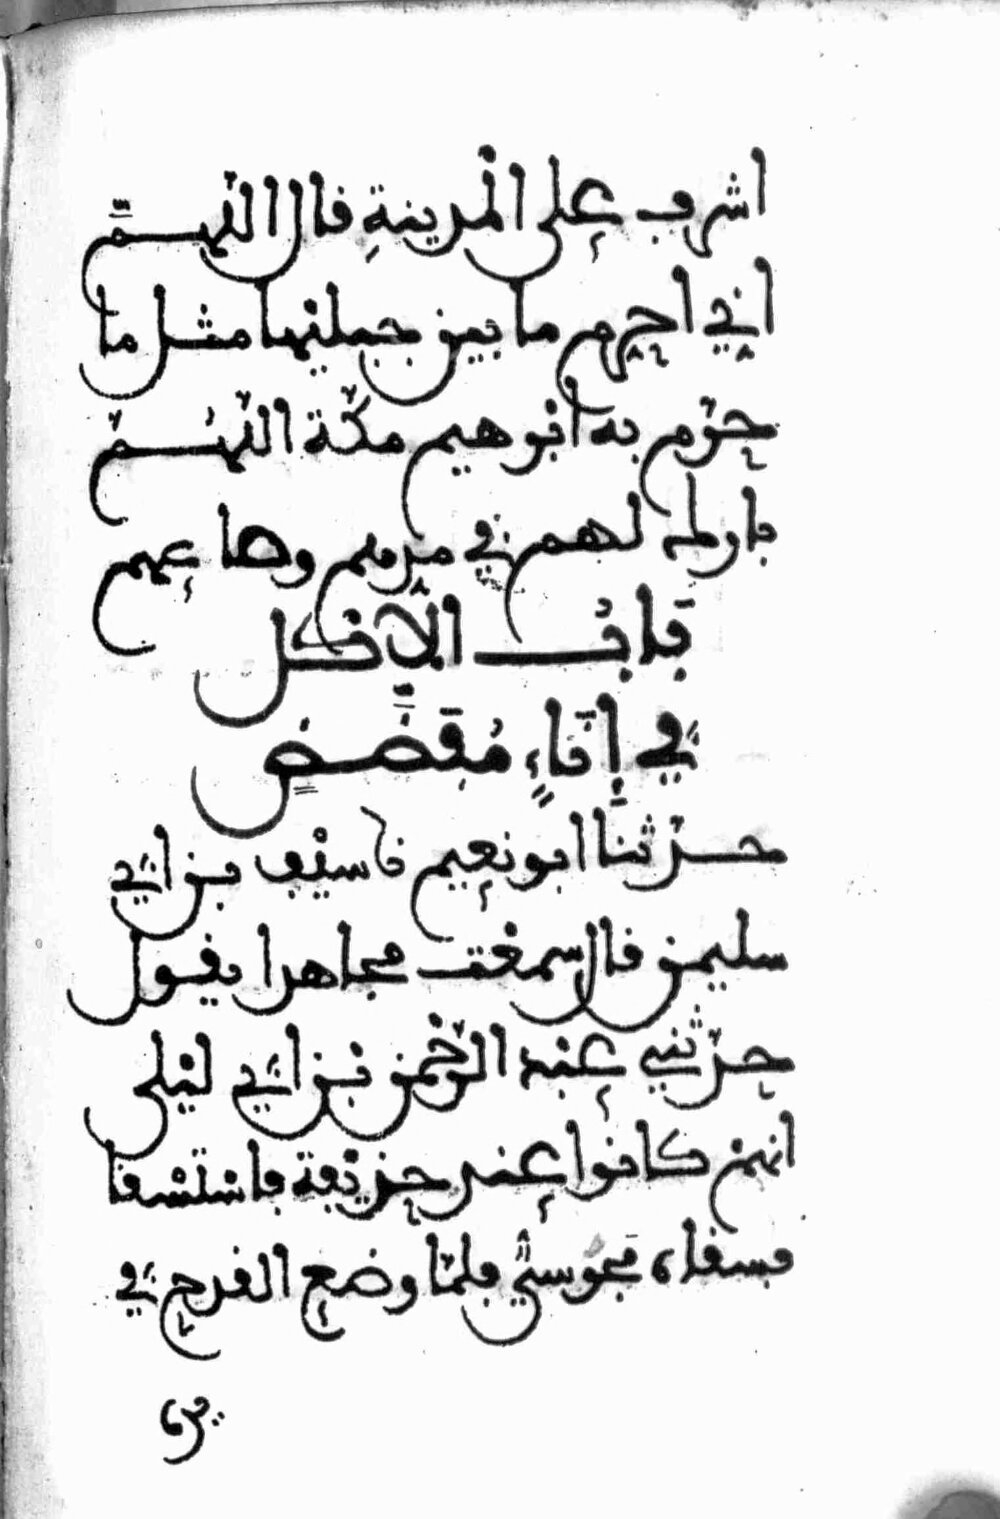 اشرف على المدينةِ قال اللّهمّ
اني احرم ما بين جبليْها مثل ما
حرّم به ابْرهيم مكّة اللّهُمّ
بارك لهم في مدهم وصاعهم
بَابُ الْأَكْل
في إِنَاءٍ مُفَضَّضٍ
حدّثنَا ابو نعيم نا سيْف بن ابي
سليمن قال سمعْت مجاهدا يقول
حدّثني عبْد الرّحْمن بْن ابي ليْلى
انهمْ كانوا عند حذيْفة فاسْتسْقا
فسقاه مجوسيّ فلمّا وضع القدح في
يده